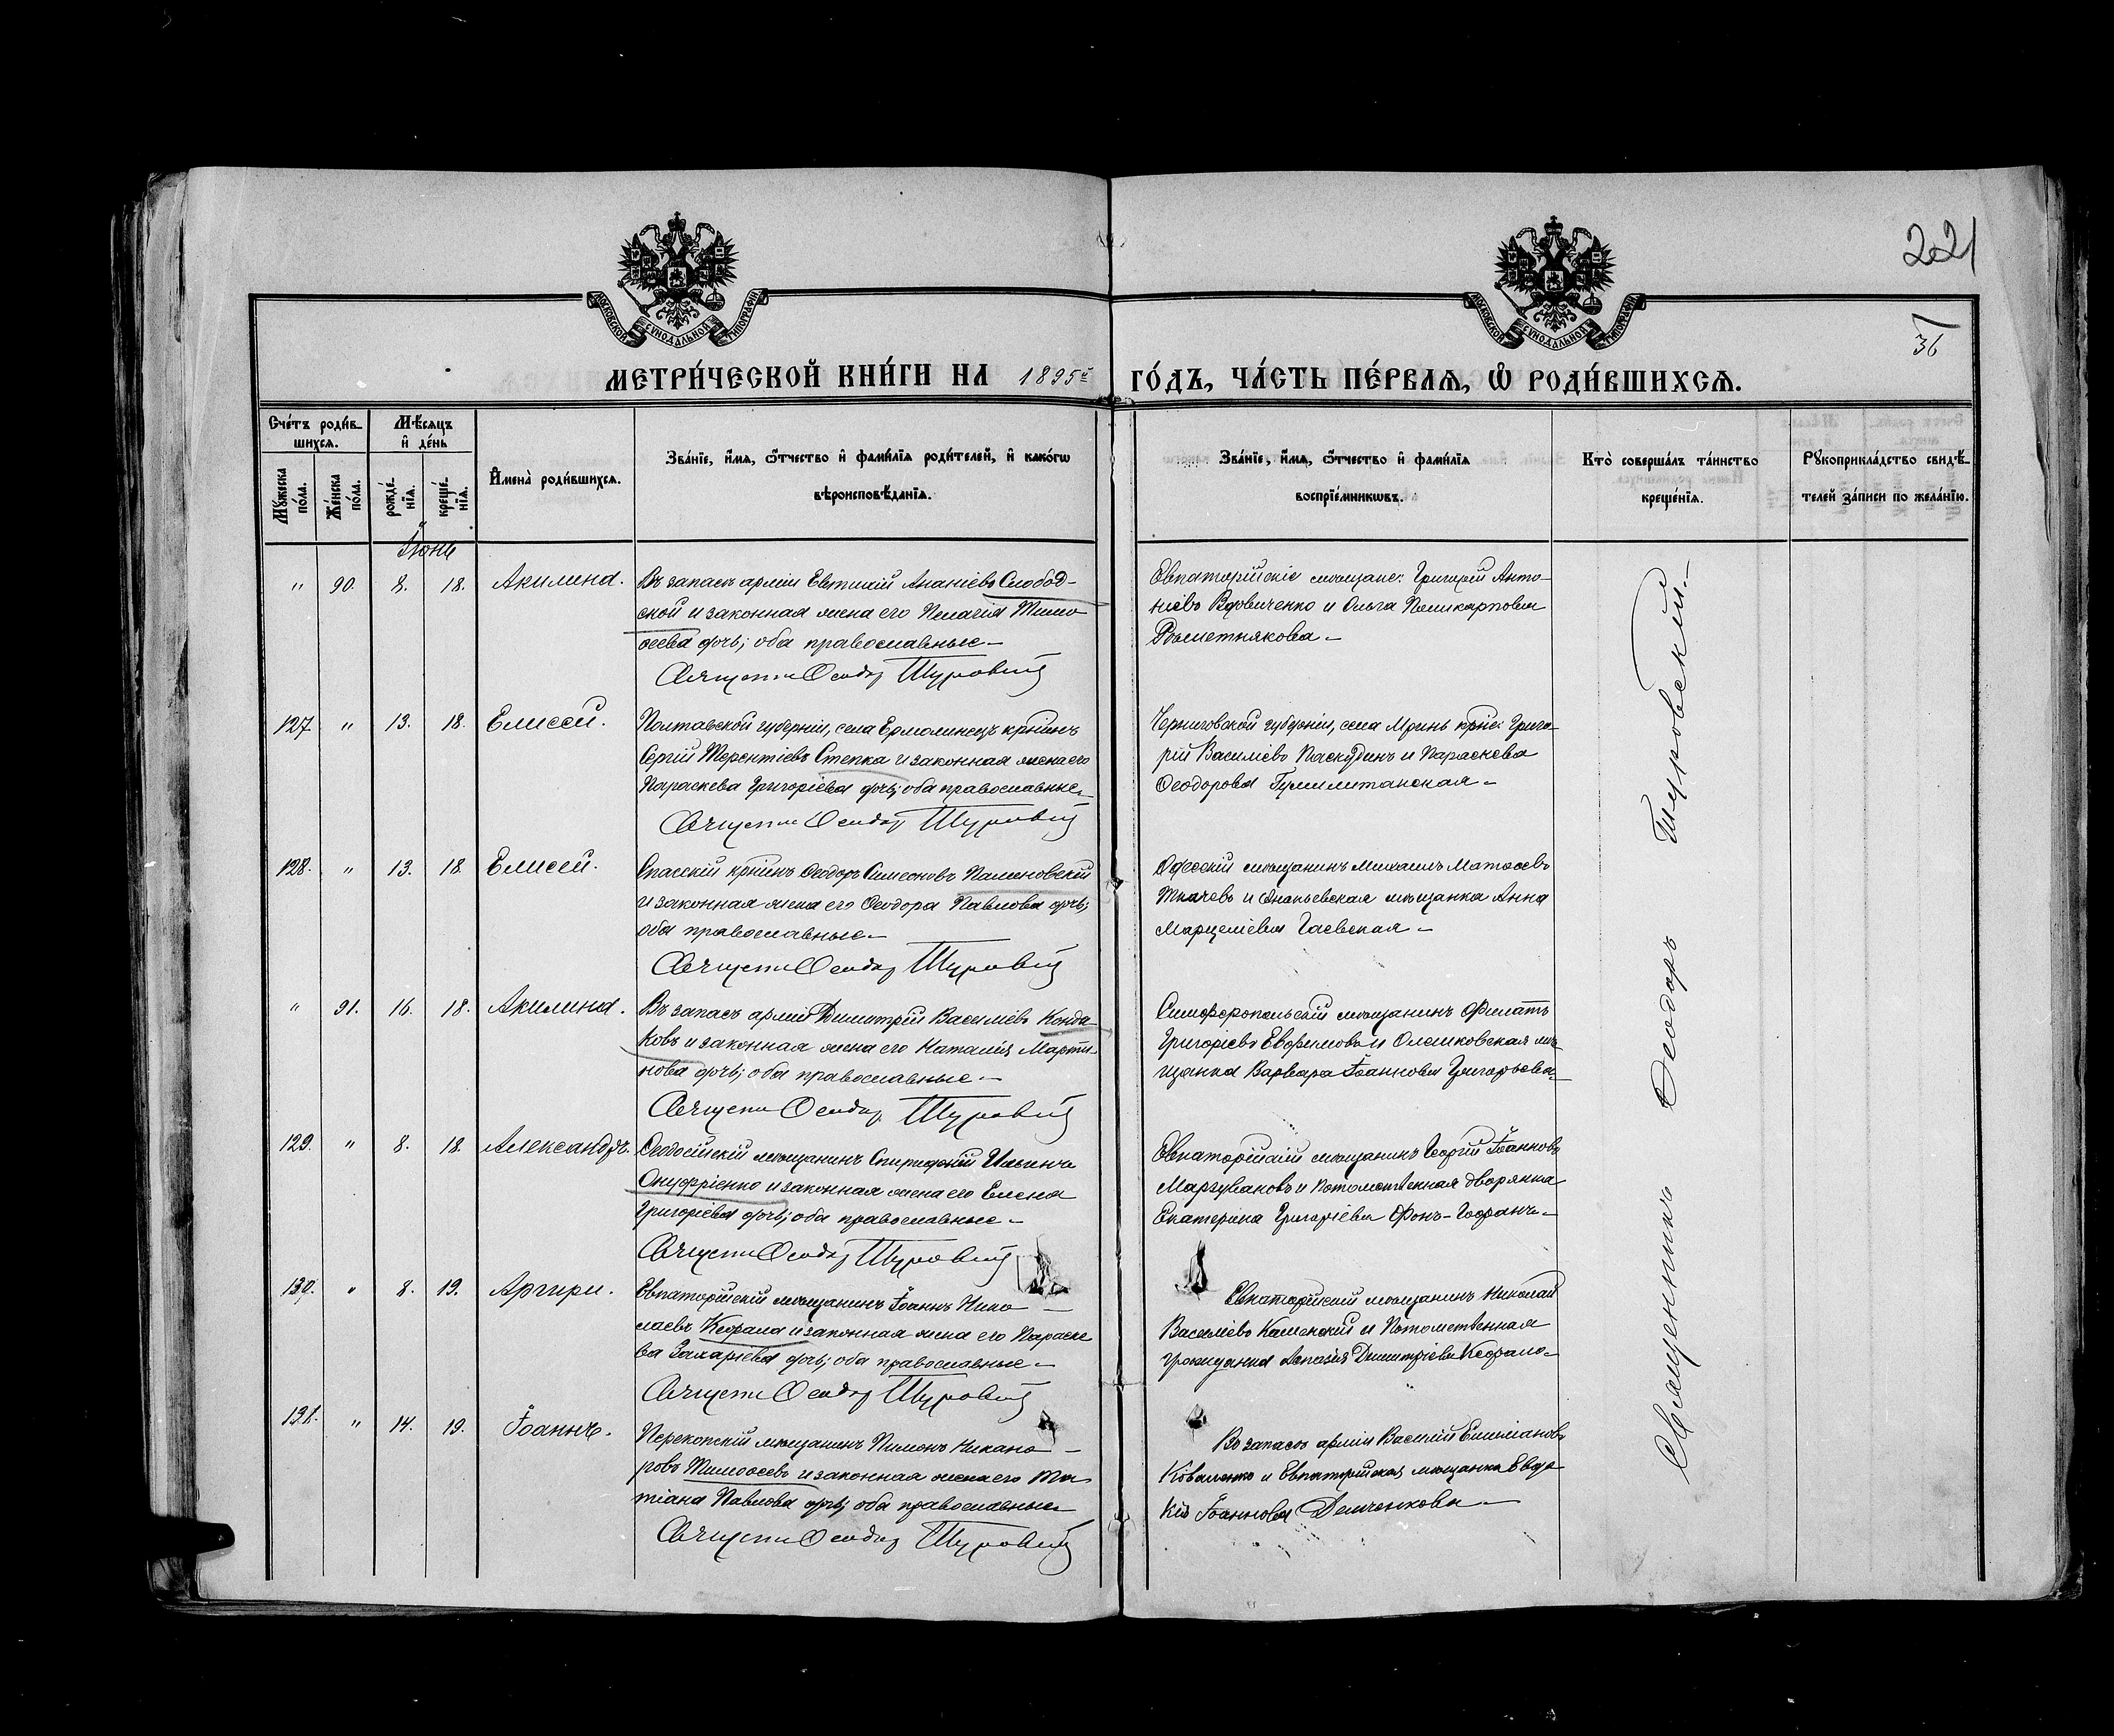 221
36
МОСКОВСКОЙ СѴНОДАЛЬНОЙ ТИПОГРАФІИ
МОСКОВСКОЙ СѴНОДАЛЬНОЙ ТИПОГРАФІИ
МЕТРИ́ЧЕСКОЙ КНИ́ГИ НА 1895й ГО́ДЪ, ЧА́СТЬ ПЕ́РВАЯ, Ѡ҆ РОДИ́ВШИХСЯ.
Сче́тъ роди́в-
шихся.
Мѣ́сяцъ
и҆ де́нь
Мꙋ́жеска по́ла.
Же́нска по́ла.
рожде́-
нїя.
креще́-
нїя.
И҆мена̀ роди́вшихся.
Зва́нїе, и҆́мя, ѻ҆́тчество и҆ фами́лїя роди́телей, и҆ како́гѡ
вѣроисповѣ́данїя.
Зва́нїе, и҆́мя, ѻ҆́тчество и҆ фами́лїя
воспрїе́мникѡвъ.
Кто̀ соверша́лъ та́инство
креще́нїя.
Рꙋкоприкла́дство свидѣ́-
телей за́писи по жела́нїю.
Іюнь
" 90. 8. 18. Акилина.
Въ запасѣ арміи Евтихій Ананіевъ Слобод-
ской и законная жена его Пелагія Тимо
ѳеева дочь; оба православные.-
Священ Ѳеодор Туровскій
Евпаторійскіе мѣщане: Григорій Анто-
ніевъ Вдовиченко и Ольга Поликарпова
127 " 13. 18. Елисей.
Полтавской губерніи, села Ермолинецъ крнинъ
Сергій Терентіевъ Степка и законная жена его
Параскева Григоріева дочь; оба православные.-
Священ Ѳеодор Туровскій
Черниговской губерніи, села Мринь крне: Григо-
рій Василіевъ Паскудинъ и Параскева
Ѳеодорова
128. " 13. 18 Елисей.
Спасскій крнинъ Ѳеодоръ Симеоновъ Палиновскій
и законная жена его Ѳеодора Павлова дочь;
оба православные.-
Священ Ѳеодор Туровскій
Одесскій мѣщанинъ Михаилъ Матѳеевъ
Ткачевъ и Ананьевская мѣщанка Анна
Марцеліева Гаевская -
" 91. 16. 18. Акилина.
Въ запасѣ арміи Димитрій Василіевъ Конда-
ковъ и законная жена его Наталія Марти-
нова дочь; оба православные.-
Священ Ѳеодор Туровскій
Симферопольскій мѣщанинъ Филатъ
Григоріевъ Евфимовъ и Олешковская мѣ-
щанка Варвара Іоаннова Григорьева.-
129. " 8. 18. Александръ.
Ѳеодосійскій мѣщанинъ Спиридонъ Ильинъ
Онуфріенко и законная жена его Елена
Григоріева дочь; оба православные.-
Священ Ѳеодор Туровскій
Евпаторійскій мѣщанинъ Георгій Іоанновъ
Маргувановъ и потомственная дворянка
Екатерина Григоріева Фонъ-
130. " 8. 19. Аргири.
Евпаторійскій мѣщанинъ Іоаннъ Нико-
лаевъ Кефала и законная жена его Параске
ва Захаріева дочь; оба православные.-
Священ Ѳеодор Туровскій
Евпаторійскій мѣщанинъ Николай
Василіевъ Каменскій и потомственная
гражданка Аспазія Димитріева Кефало.-
131. " 14. 19. Іоаннъ.
Перекопскій мѣщанинъ Пименъ Никано-
ровъ Тимоѳеевъ и законная жена его Та
тіана Павлова дочь; оба православные
Священ Ѳеодор Туровскій
Въ запасѣ арміи Василій Емиліановъ
Коваленко и Евпаторійская мѣщанка Евдо
кія Іоаннова Демченкова -
Священникъ Ѳеодоръ Туровскій.-